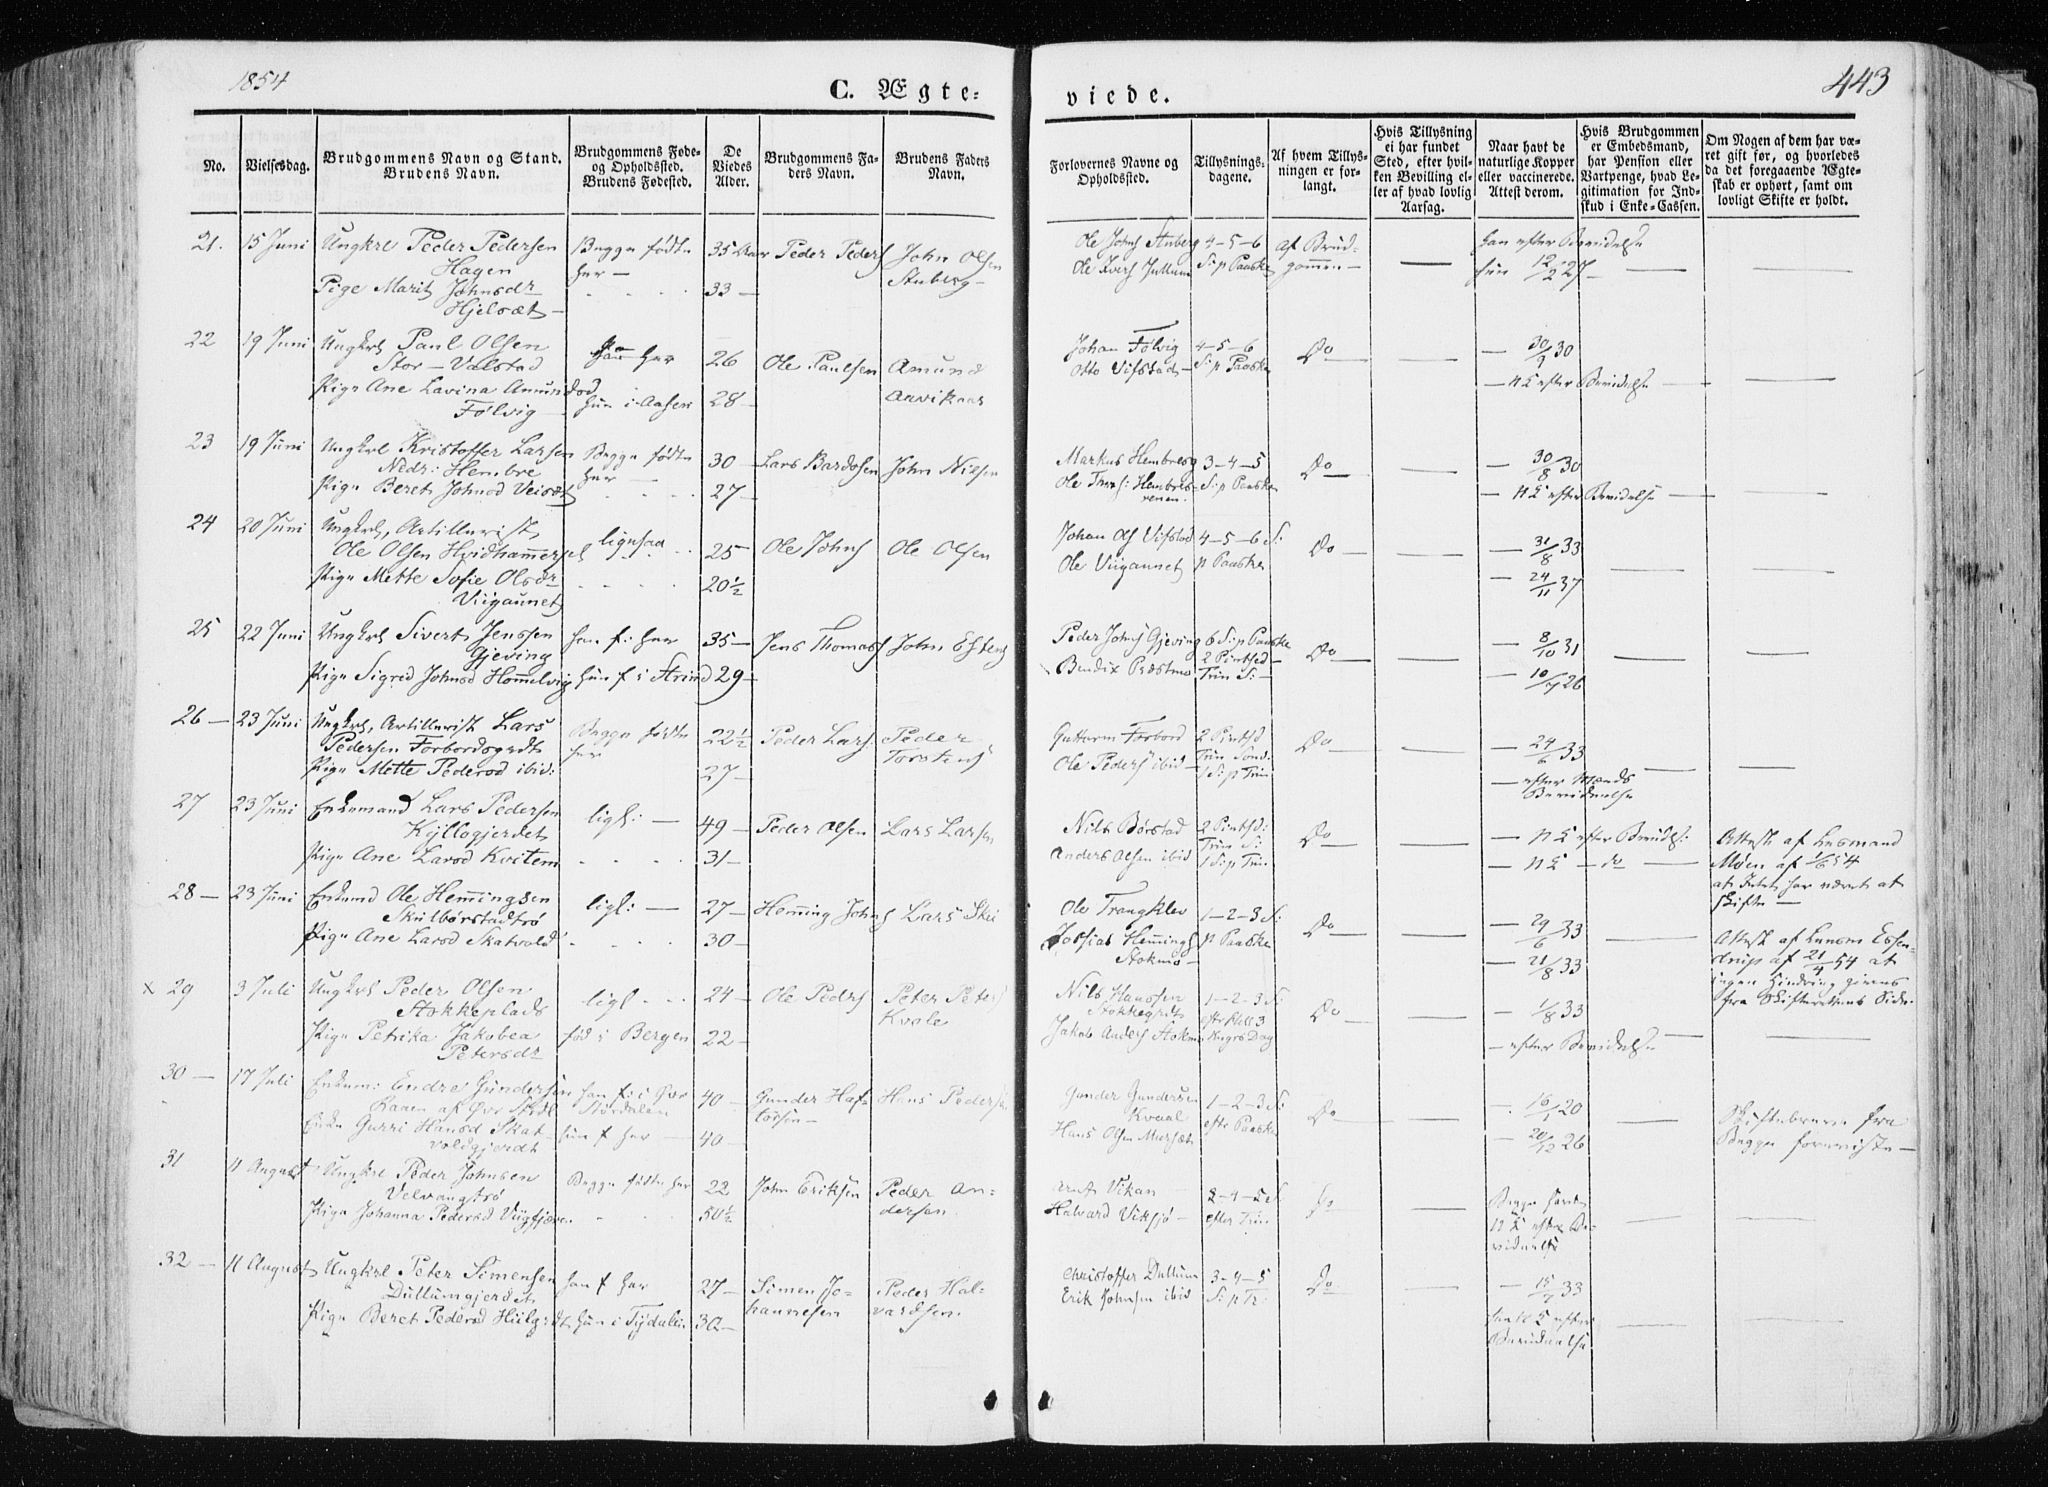 1854
C. Ægte-
viede.
443
No.
Vielsesdag.
Brudgommens Navn og Stand.
Brudens Navn.
Brudgommens Føde-
og Opholdssted.
Brudens Fødested.
De
Viedes
Alder.
Brudgommens Fa-
ders Navn.
Brudens Faders
Navn.
Forlovernes Navne og
Opholdssted.
Tillysnings-
dagene.
Af hvem Tillys-
ningen er for-
langt.
Hvis Tillysning
ei har fundet
Sted, efter hvil-
ken Bevilling el-
ler af hvad lovlig
Aarsag.
Naar havt de
naturlige Kopper
eller vaccinerede.
Attest derom.
Hvis Brudgommen
er Embedsmand,
har Pension eller
Vartpenge, hvad Le-
gitimation for Ind-
skud i Enke-Cassen.
Om Nogen af dem har væ-
ret gift før, og hvorledes
da det foregaaende Ægte-
skab er ophørt, samt om
lovligt Skifte er holdt.
21.
15 Juni
Ungkrl Peder Pedersen
Hagen
Pige Marit Johnsdr
Hjelsæt
Begge fødte
her
35 Aar
33
Peder Peders
John Olsen
Stuberg
Ole Johns Stuberg
Ole Ivers Jullum
4-5-6
S: p Paaske
Af Brud-
gommen
han efter Bevidelse
hun 12/2 27
22
19 Juni
Ungkrl Paul Olsen
Stor-Valstad
Pige Ane Lavina Amunds
Følvig
her
hun i Aasen
26
28
Ole Paulsen
Amund
Anvikaas
Johan Følvig
Otto Vifstad
4-5-6
S: p Paaske
Do
30/9 30
NS efter Bevidelse
23
19 Juni
Ungkrl Kristoffer Larsen
Nedr: Hembre
Pige Beret Johnsd Veisæt
Begge fødte
her
30
27
Lars Bardosen
John Nilsen
Markus Hembre
3-4-5
S: p Paaske
Do
30/8 30
NS efter Bevidelse
24
20 Juni
Ungkrl, Artillerist
Ole Olsen Hvidhammer
Pige Mette Sofie Olsdr
Viigaunet
ligesaa
25
20½
Ole Johns
Ole Olsen
Johan Ols Vifstad
Ole Viigaunet
4-5-6 S:
p Paaske
Do
31/8 33
24/11 37
25
22 Juni
Ungkrl Sivert Jenssen
Gjeving
Pige Sigred Johnsd Hommelvig
han f: her
hun f i Strind
35
29
Jens Thomas
John Estens
Peder Johns Gjeving
Bendix Præstmo
6 S: p Paaske
2 Pintsed
Trin S:
Do
8/10 31
10/9 26
26
23 Juni
Ungkrl, Artillerist Lars
Pedersen Forbordsgrdt
Pige Mette Pedersd ibid:
Begge fødte
her
22½
27
Peder Lars
Peder
Torstens
Guttorm Forbord
Ole Peders ibid
2 Pintsd
Trin Sønd
1 S: p Trin
Do
24/6 33
efter Mænds
Bevidnelse
27
23 Juni
Enkemand Lars Pedersen
Kyllogjerdet
Pige Ane Larsd Kvitem
ligl:
49
31
Peder Olsen
Lars Larsen
Nils Børstad
Anders Olsen ibid
2 Pintsd:
Trin S:
1 S: p Trin
Do
NS efter Bevidls:
NS do
Attest af Lensmand
Møen af 1/6 54
at Intet har været at
skifte
28
23 Juni
Enkemd Ole Hemmingsen
Skulbørstadtrø
Pige Ane Larsd Skatvold
ligl:
27
30
Hemming Johns
Lars Ski
Ole Trangklev
Josias Hemmings
Stokmo
1-2-3 S:
p Paaske
Do
29/6 33
21/8 33
Attest af Lensm Essen-
drup af 21/4 54 at
ingen Hindring gives
fra Skifterettens Side.
x 29
3 Juli
Ungkrl Peder Olsen
Stokkeplads
Pige Petrika Jakobea
Petersdr
ligl
fød i Bergen
24
22
Ole Peders
Peter Peters
Kvale
Nils Hanssen
Stokkegrdt
Jakob Anders Stokmo
1-2-3 S:
Do
1/8 33
efter Bevidelse
30
17 Juli
Enkem: Endre Gundersen
Raaen af Øvr Stjdl
Enke Gurri Hansd Skat-
voldgjerdt
han f: i Øvr
Størdalen
hun f her
40
40
Gunder Haf-
torsen
Hans Pedersen
Gunder Gundersen
Kvaal
Hans Olsen Mursæt
1-2-3 S:
efter Paaske
Do
16/1 20
20/12 26
Skiftebreve fra
Begge foreviste
31
11 August
Ungkrl Peder Johnsen
Velvangtrø
Pige Johanna Pedersd Viigtjern
Begge fødte her
22
50½
John Eriksen
Peder An-
dersen
Arnt Vikan
Halvard Viksjø
3-4-5 S:
efter Trin
Do
Begge havde
NS efter Be-
vidnelse
32
11 August
Ungkrl Peter Simensen
Dullumgjerdet
Pige Beret Pedersd Hiilgrdt
han f her
hun i Tydalen
27
30
Simen Jo-
hannesen
Peder Hal-
vardsen
Christoffer Dullum
Erik Johnsen ibid
3-4-5
S: p Tr:
Do
15/7 33
efter
Bevidnelse